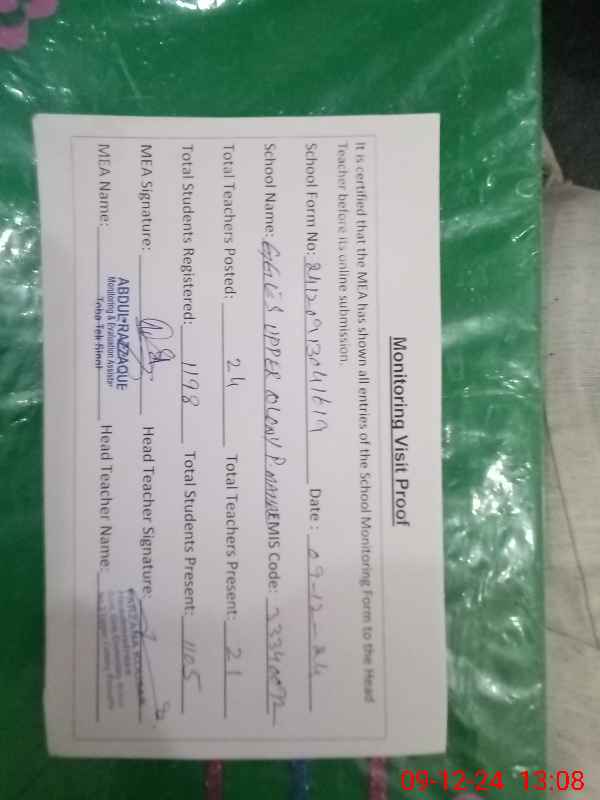 Monitoring Visit Proof
It is certified that the MEA has shown all entries of the School Monitoring Form to the Head
Teacher before its online submission.
School Form No: 24120913041619 Date : 09-12-24
School Name: UPPER COLONY P. EMIS Code: 33340092
Total Teachers Posted: 24 Total Teachers Present: 21
Total Students Registered: 1198 Total Students Present: 1105
MEA Signature: Head Teacher Signature:
MEA Name: ABDUL RAZZAQUE Head Teacher Name:
Monitoring & Evaluation Assistant
Toba Tek Singh
09-12-24 13:08